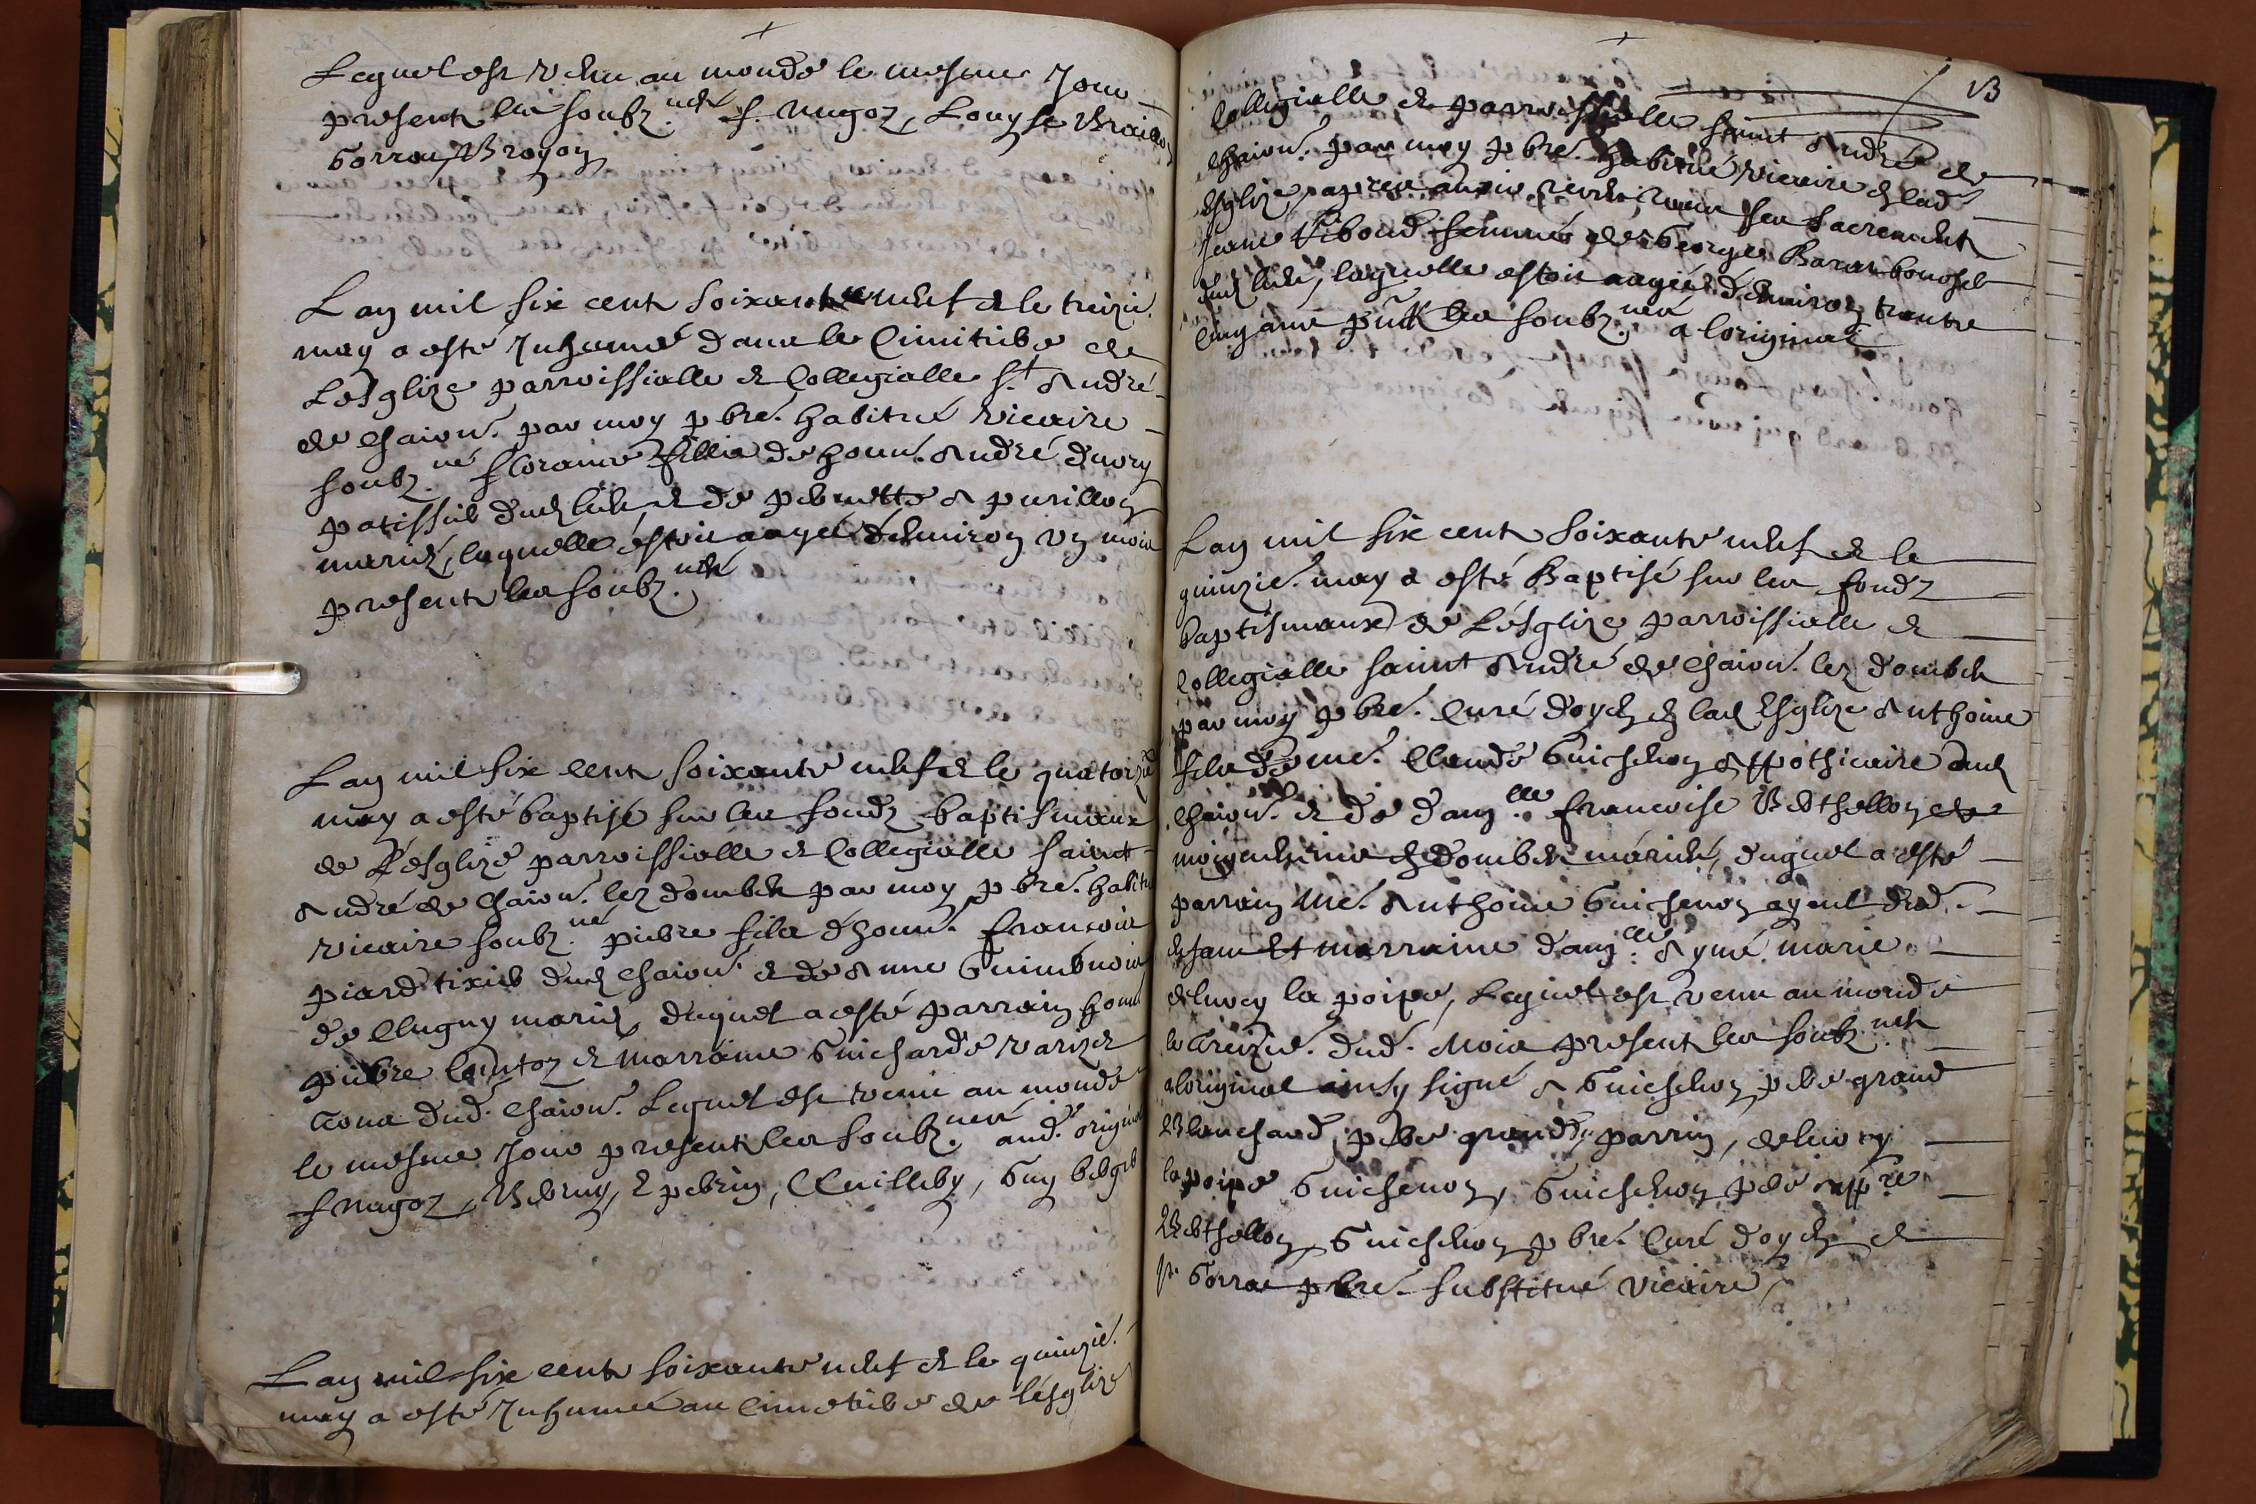 Lequel est venu au monde le mesme Jour
present les soubz.nés f. nugoz, Louyse
Gorraz, Brogoz
Lan mil six cent soixante neuf & le treizié.
may a esté Inhumé dans le Cimitiere de
Lésglize parroissialle & Collegialle S.t André
de Chaion. par moy pbre. habitué vicaire
soubz.né florance fillie de hon. André duory
patissier dud lieu & de pernette Apurilloz
mariez, laquelle éstoit aagée denviron un mois
present les soubz.nés
Lan mil six cent soixante neuf & le quatorzié
may a esté baptisé sur les fondz baptismaux
de Lésglize parroissialle & Collegialle saint
André de Chaion. lez dombes par moy pbre. habitué
vicaire soubz.né pierre filz dhon. françois
piard tixier dud Chaion. & de Anne
de Clugny mariez, duquel a esté parrain hon
pierre & marraine Guicharde
dud. Chaion. Lequel est venu au monde
le mesme Jour present les soubz.nés aud. original
f nugoz, & perrin, Cuilleby, Guy
Lan mil six cent soixante neuf & le quinzié.
may a esté Inhumée au Cimetiere de lésglize
13
Collegialle & parroissialle saint André de
Chaion. par moy pbre. habitué vicaire de lad
Esglize apres avoir receu tous ses sacrements
Jeanne Tiboud femme de George
dud lieu, laquelle estoit aagée denviron trente
cinq ans pntz les soubz.nés a loriginal
Lan mil six cent soixante neuf & le
quinzié. may a esté Baptisé sur les fondz
baptismaux de Lésglize parroissialle &
Collegialle saint André de Chaion. lez dombes
par moy pbre. Curé doyen de lad Esglize Anthoine
filz de me. Claude Guichenon Appothicaire dud
Chaion. & de dam.lle françoise Berthelloz de
en dombes mariez, duquel a esté
parrain Me. Anthoine Guichenon ayeul dud.
Et marraine dam.lle Aymé marie
deluory la poipe, Lequel est venu au monde
le treizié. dud. mois present les soubz.nés
a loriginal ainsy signé A Guichenon pere grand
Blanchard, pere grand, parrin, deluory
la poipe Guichenon, Guichenon pere app.re
Berthelloz, Guichenon pbré Curé doyen &
Gorraz pbré. substitué vicaire